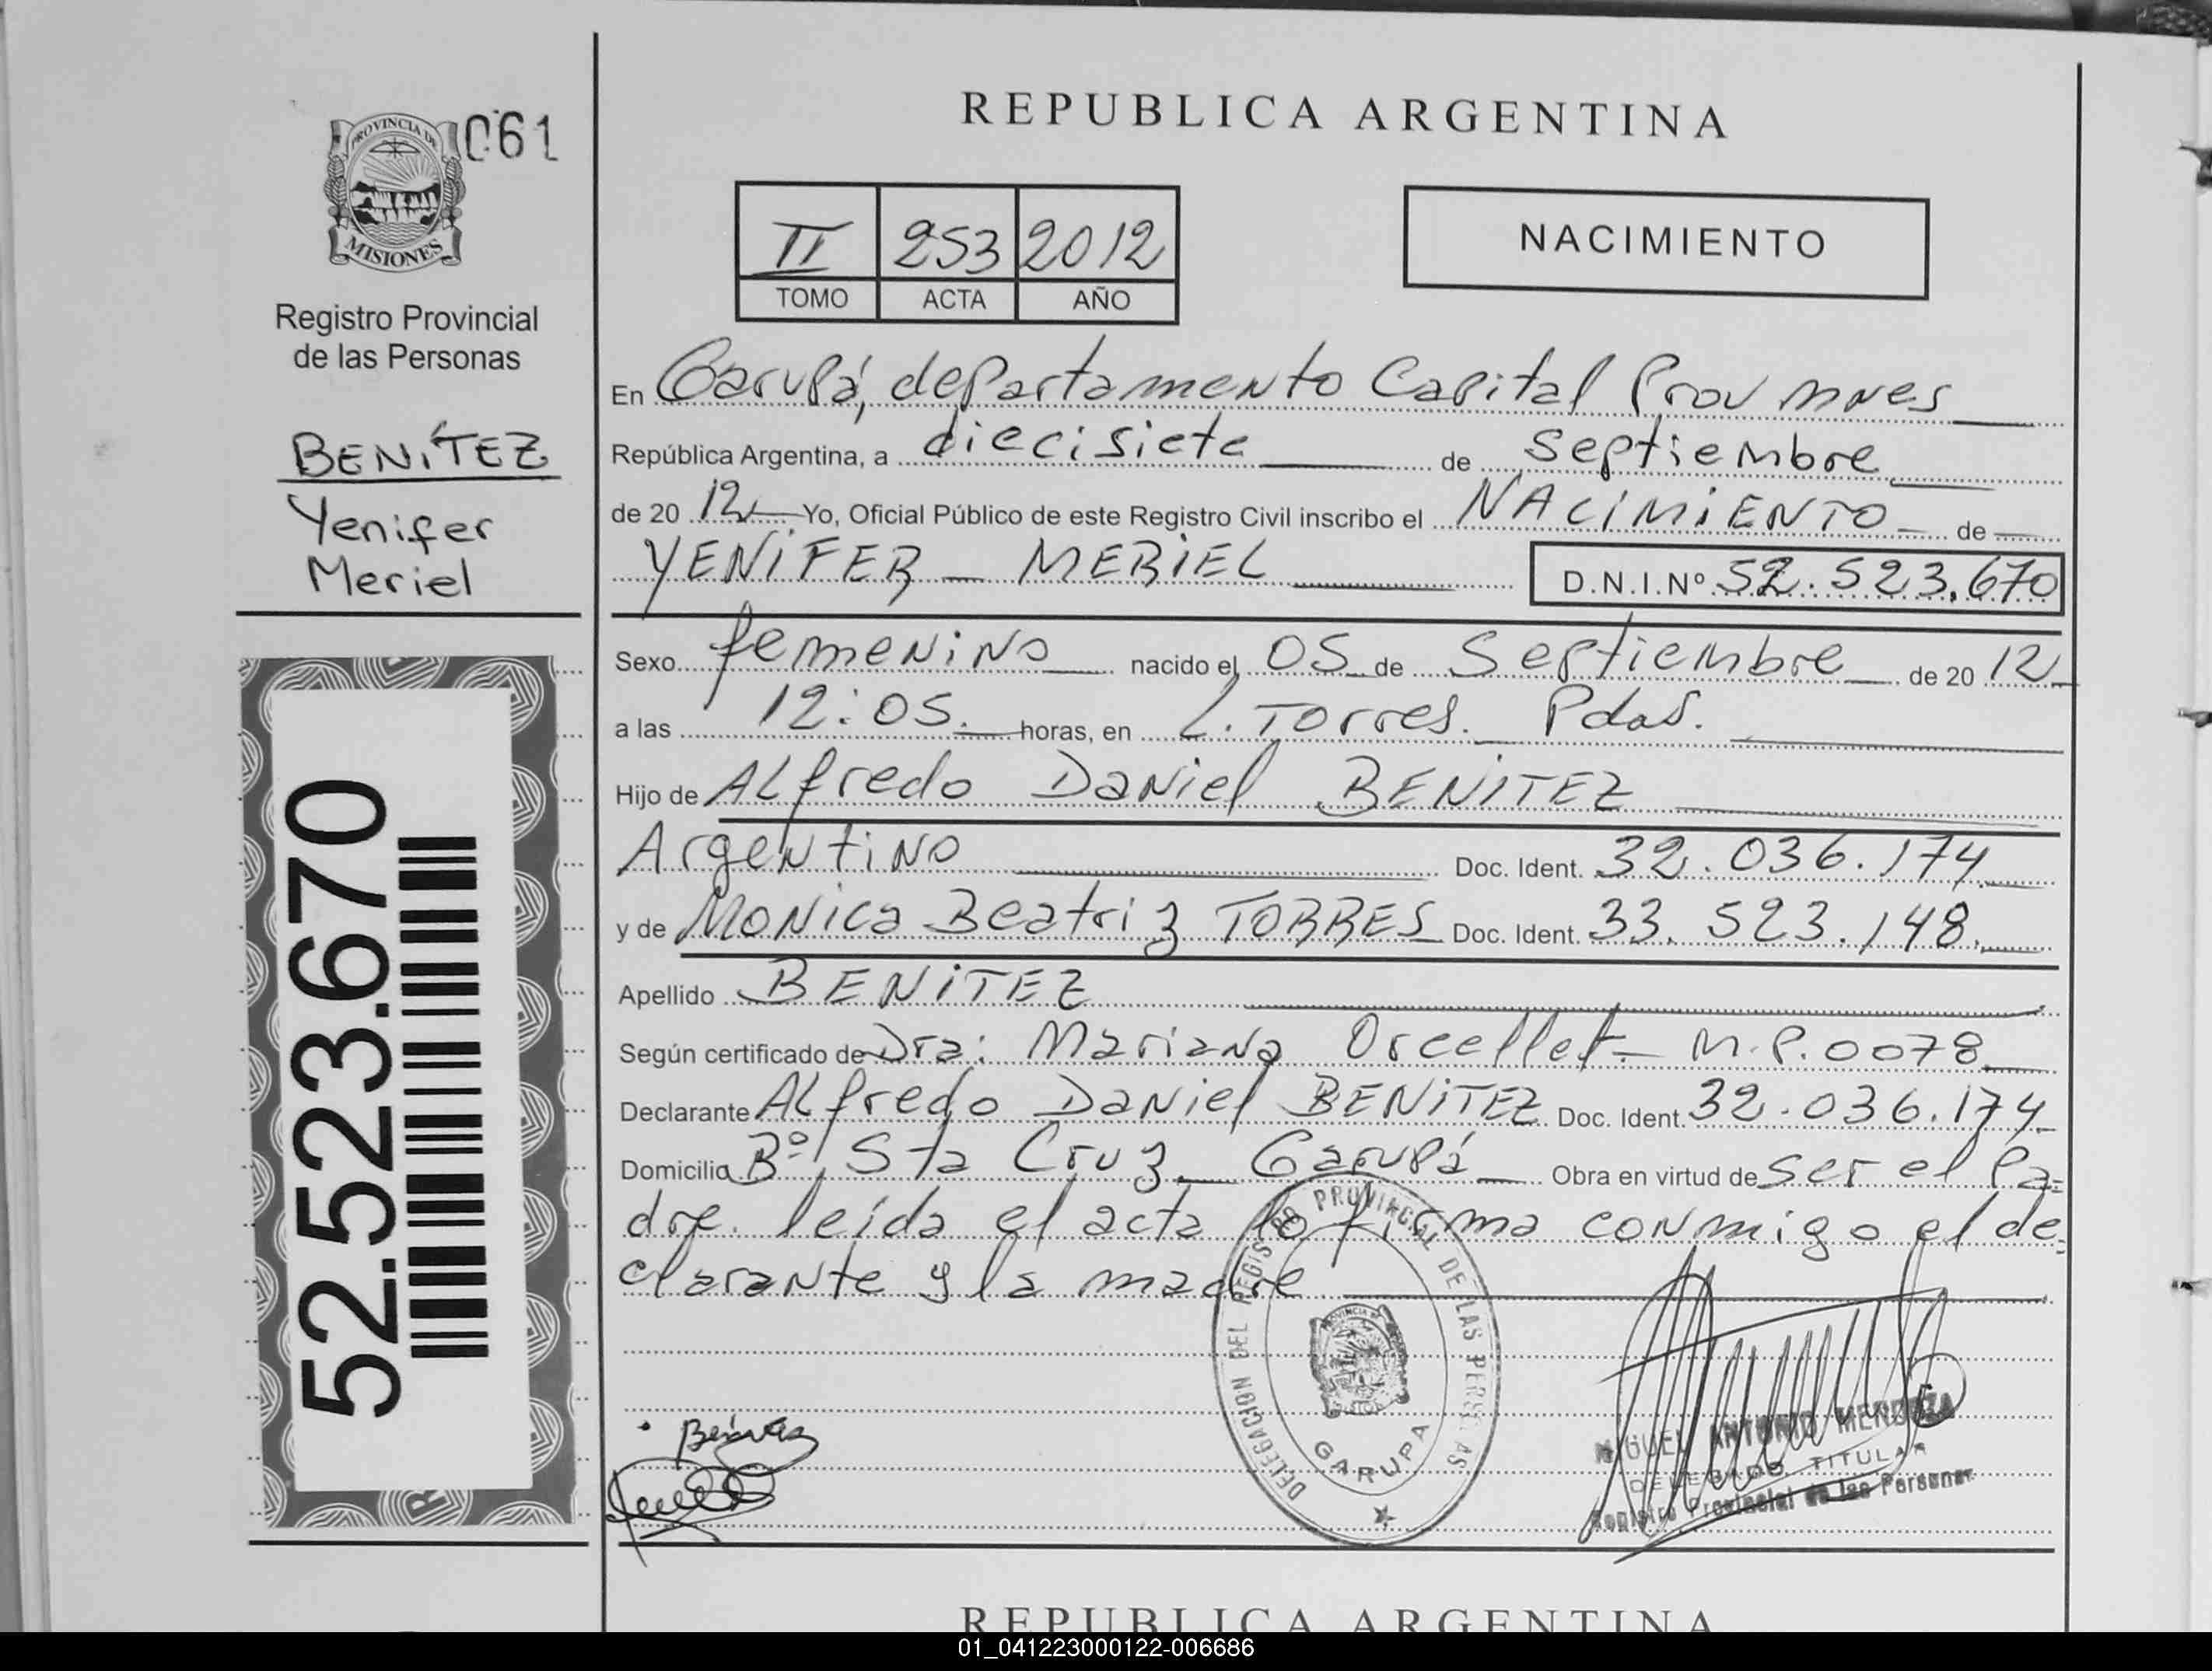 PROVINCIA DE
MISIONES
061
Registro Provincial
de las Personas
BENÍTEZ
Yenifer
Meriel
52.523.670
REPUBLICA ARGENTINA
II 253 2012
TOMO ACTA AÑO
NACIMIENTO
En Garupá, departamento Capital Prov mnes
República Argentina, a diecisiete de septiembre
de 20 12 Yo, Oficial Público de este Registro Civil inscribo el NACIMIENTO de
YENIFER MERIEL D.N.I.Nº 52.523.670
Sexo femenino nacido el 05 de Septiembre de 20 12
a las 12:05. horas, en L. Torres. Pdas.
Hijo de Alfredo Daniel BENITEZ
Argentino Doc. Ident. 32.036.174
y de Monica Beatriz TORRES Doc. Ident. 33.523.148.
Apellido BENITEZ
Según certificado de Dra: Mariana Orcellet M.P.0078
Declarante Alfredo Daniel BENITEZ Doc. Ident. 32.036.174
Domicilio Bº Sta Cruz Garupá Obra en virtud de ser el Pa=
dre. leída el acta lo firma conmigo el de=
clarante y la madre
DELEGACION DEL REGISTRO PROVINCIAL DE LAS PERSONAS
GARUPA
MIGUEL ANTONIO MENDOZA
DELEGADO TITULAR
Registro Provincial de las Personas
REPUBLICA ARGENTINA
01_041223000122-006686